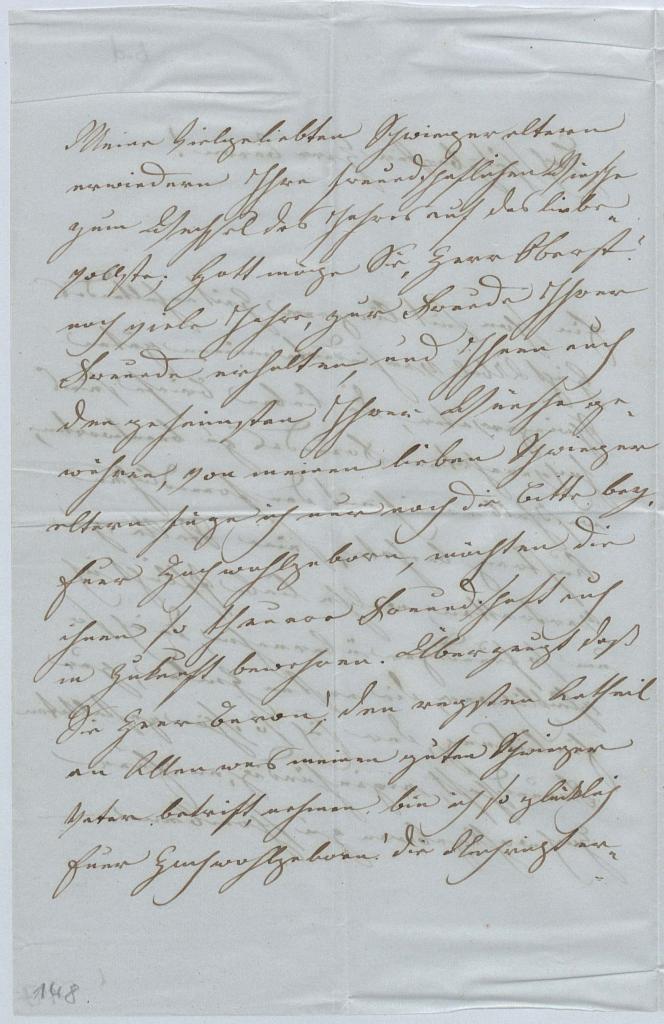 Meine Vielgeliebten Schwiegereltern
erwiedern Ihre freundschaftlichen Wünsche
zum Wechsel des Jahres auf das liebe-
vollste; Gott möge Sie, Herr Oberst!
noch viele Jahre, zur Freude Ihrer
Freunde erhalten, und Ihnen auch
den geheimsten Ihrer Wünsche ge-
währen, von meinen lieben Schwieger
eltern füge ich nur noch die Bitte bey,
Euer Hochwohlgeborn, möchten die
ihnen so theuere Freundschaft auch
in Zukunft bewahren. Überzeugt daß
Sie Herr Baron! den regsten Antheil
an Allen was meinen guten Schwieger
Vater betrift, nehmen bin ich so glücklich
Euer Hochwohlgeborn! die Nachricht er-
148